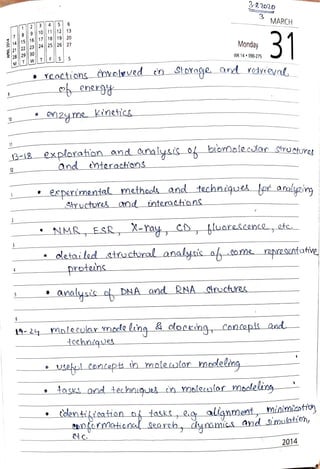 3-2-2020
3 MARCH
Monday
31
WK 14 • 090-275
APRIL 2014
• reactions involeved in storage and retrieval
of energy
• enzyme kinetics
13-18 exploration and analysis of biomolecular structures
and interactions
• experimental methods and techniques for analyzing
structures and interactions
• NMR, ESR, X-ray, CD, fluorescence, etc
• detailed structural analysis of some representative
proteins
• analysis of DNA and RNA structures
19-24 molecular modeling & docking, concepts and
techniques
• useful concepts in molecular modeling
• tasks and techniques in molecular modeling
• identification of tasks, e.g alignment, minimization,
conformational search, dynamics and simulation,
etc.
2014